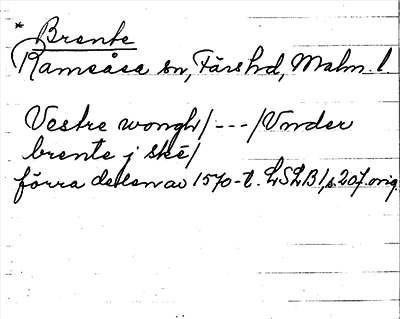 * Brente
Ramsåsa sn, Färs hd, Malm. l.
Vestre wongh/ --- /Vnder
brente j ské/
förra delen av 1570-t. LSLB1, s. 207. orig.